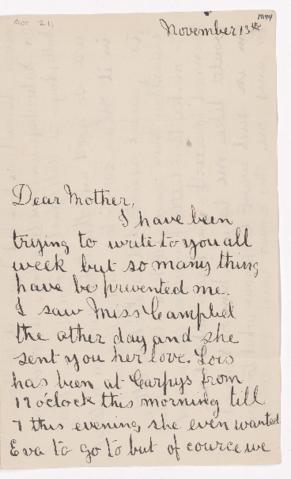 Nov 21,
1894
November 13th
Dear Mother,
I have been
trying to write to you all
week but so many thing
have be prevented me.
I saw Miss Campbel
the other day and she
sent you her love. Lois
has been at Carpys from
o'clock this morning till
7 this evening, she even wanted
Eva to go to but of cource we